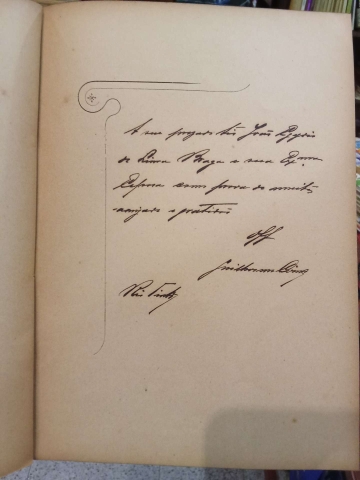 A seu presado tio João Egydio
de Lima Braga e sua Exma
Esposa como prova de muita
amizade e gratidão
Off
Guilherme